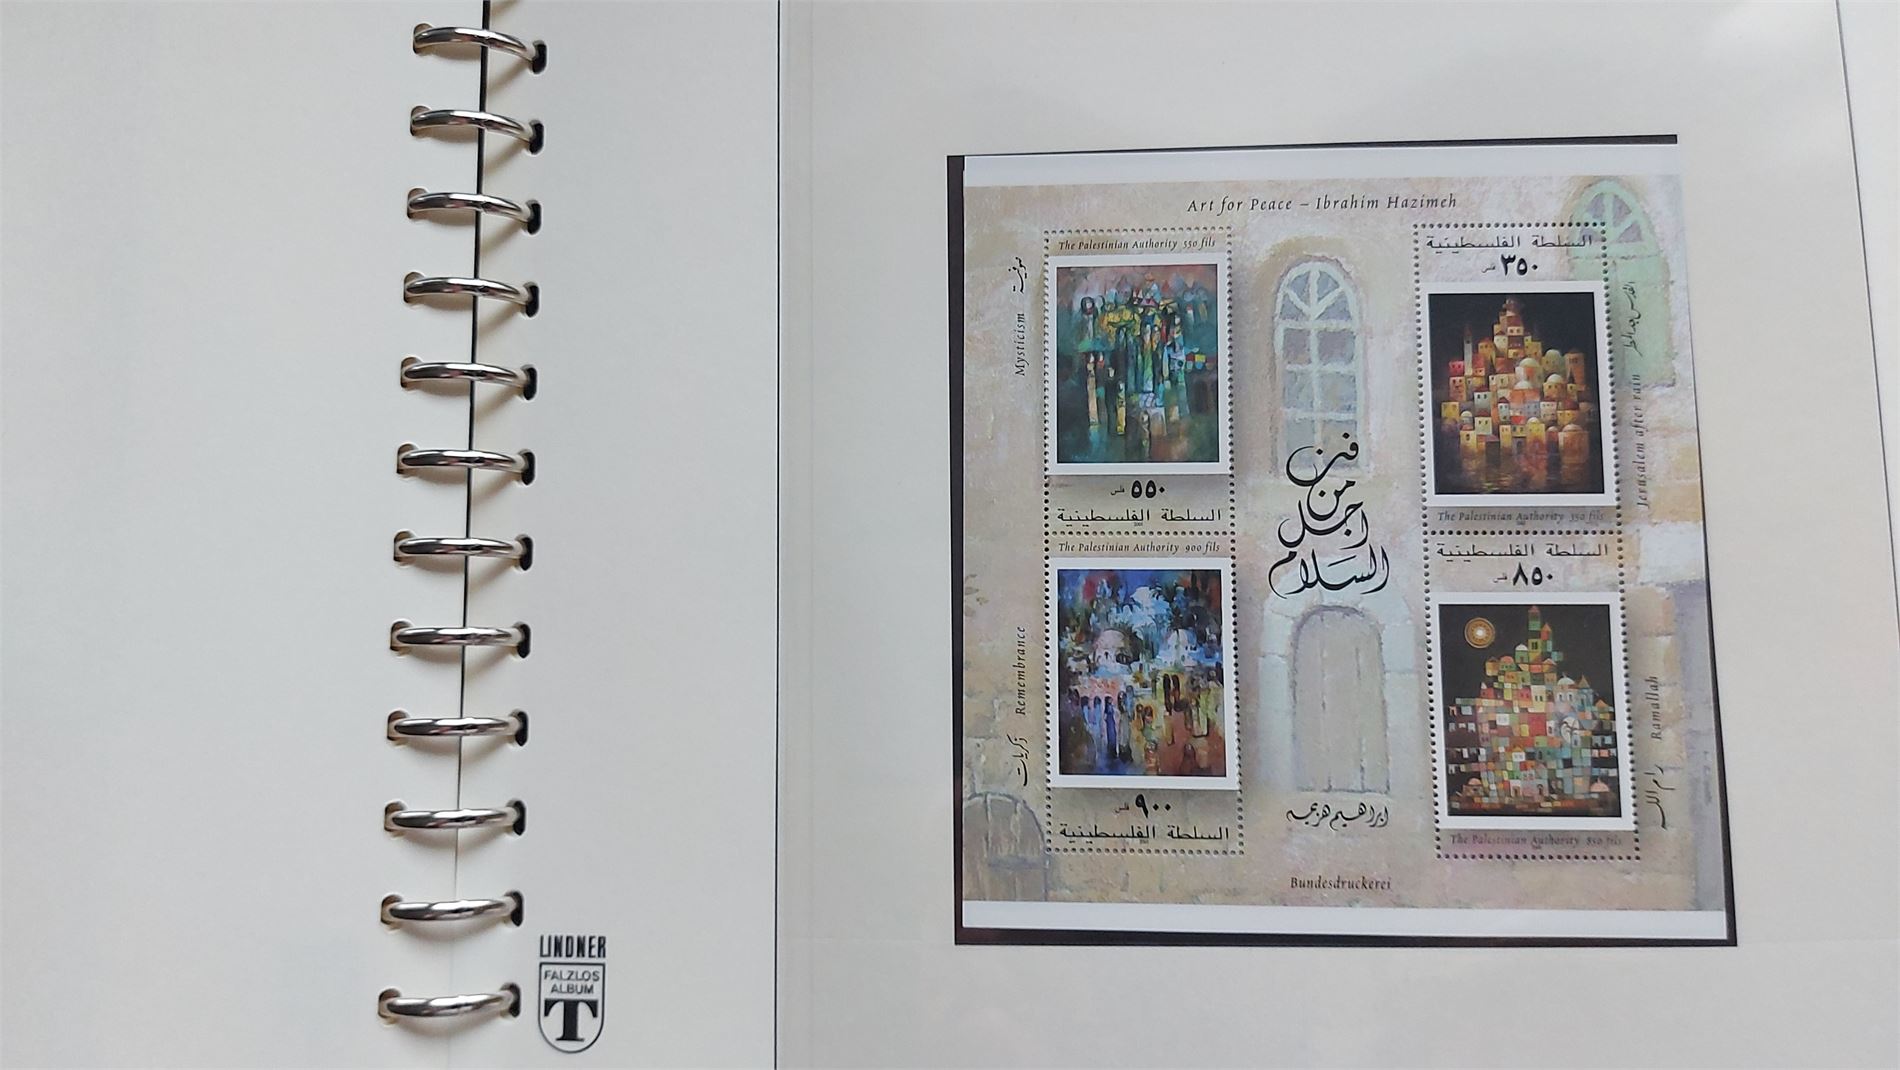 Art for Peace – Ibrahim Hazimeh
The Palestinian Authority 550 fils
Mysticism صوفية
٥٥٠ فلس
السلطة الفلسطينية
The Palestinian Authority 900 fils
Remembrance ذكريات
٩٠٠ فلس
السلطة الفلسطينية
فن
من
اجل
السلام
ابراهيم هزيمه
السلطة الفلسطينية
٣٥٠ فلس
Jerusalem after rain القدس بعد المطر
The Palestinian Authority 350 fils
السلطة الفلسطينية
٨٥٠ فلس
Ramallah رام الله
The Palestinian Authority 850 fils
Bundesdruckerei
LINDNER
FALZLOS
ALBUM
T